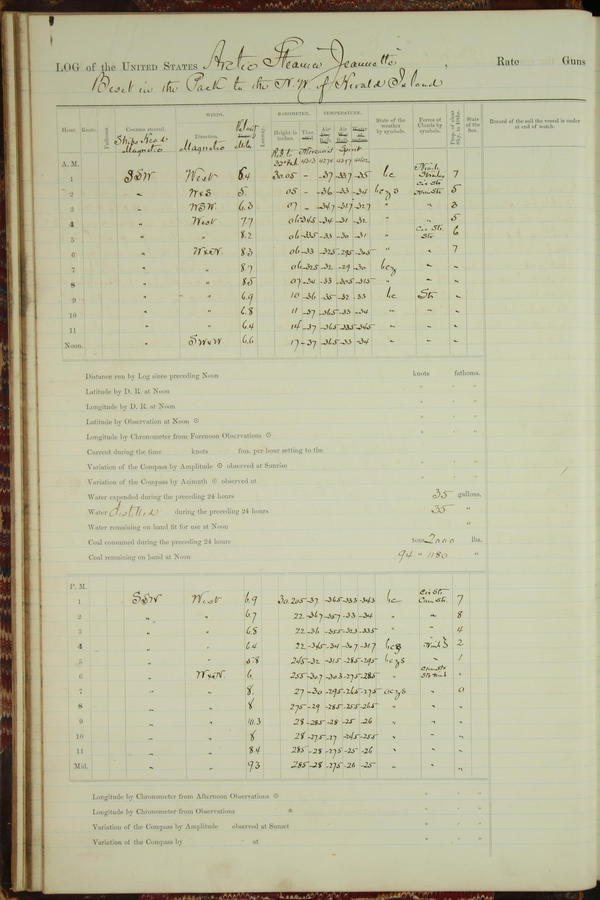 LOG of the UNITED STATES Arctic Steamer Jeannette, Rate Guns
Beset in the Pack to the N.W. of Herald Island
Hour. Knots. Fathoms. Courses steered. WINDS. Leeway. BAROMETER. TEMPERATURE. State of the weather by symbols. Forms of Clouds by symbols. Prop. of clear Sky, in 10ths. State of the Sea. Record of the sail the vessel is under at end of watch.
Ships Head Magnetic Direction. Magnetic Height in inches. Air Dry Bulb. Air Wet Bulb.
A.M.
1 SSW West 6.4 30.05 - -37 -337 -35 bc 7
2 " 5. 05 - -36 -33 -34 bczs 5
3 " WSW 6.3 07 " -347 -317 -327 " " 3
4 " West 7.7 06 -345 -34 -31 -32 " " 5
5 " " 8.2 06 -335 -33 -30 -31 " Cir Str. Str. 6
6 " 8.3 06 -33 -325 -295 -305 " " 7
7 " " 8.7 06 -325 -32 -29 -30 bcz " "
8 " " 8.5 07 -34 -33 -305 -315 " " "
9 " " 6.9 10 -36 -35 -32 -33 bc Str "
10 " " 6.8 11 -37 -365 -33 -34 " " "
11 " " 6.4 14 -37 -365 -335 -345 " " "
Noon. " SWxW 6.6 17 -37 -365 -33 -34 " " "
Distance run by Log since preceding Noon knots fathoms.
Latitude by D. R. at Noon " " "
Longitude by D. R. at Noon " " "
Latitude by Observation at Noon ☉ " " "
Longitude by Chronometer from Forenoon Observations ☉ " " "
Current during the time knots fms. per hour setting to the
Variation of the Compass by Amplitude ☉ observed at Sunrise " " "
Variation of the Compass by Azimuth ☉ observed at " " "
Water expended during the preceding 24 hours 35 gallons.
Water distilled during the preceding 24 hours 35 "
Water remaining on hand fit for use at Noon "
Coal consumed during the preceding 24 hours tons 2000 lbs.
Coal remaining on hand at Noon 94 " 1180 "
P.M.
1 SSW West 6.9 30.205 -37 -365 -333 -343 bc Cir Str. Cum Str. 7
2 " " 6.7 22 -367 -357 -33 -34 " " 8
3 " " 6.8 22 -36 -355 -323 -335 " " 4
4 " " 6.4 22 -345 -34 -307 -317 bcz 2
5 " " 5.8 245 -32 -315 -285 -295 bczs " 1
6 " 6. 255 -307 -303 -275 -285 " "
7 " " 8. 27 -30 -295 -265 -275 oczs " 0
8 " " 8 275 -29 -285 -255 -265 " " "
9 " " 10.3 28 -285 -28 -25 -26 " " "
10 " " 8 28 -275 -27 -245 -255 " " "
11 " " 8.4 285 -28 -275 -25 -26 " " "
Mid. " " 9.3 285 -28 -275 -26 -25 " " "
Longitude by Chronometer from Afternoon Observations ☉ " " "
Longitude by Chronometer from Observations * " " "
Variation of the Compass by Amplitude observed at Sunset " " "
Variation of the Compass by at " " "